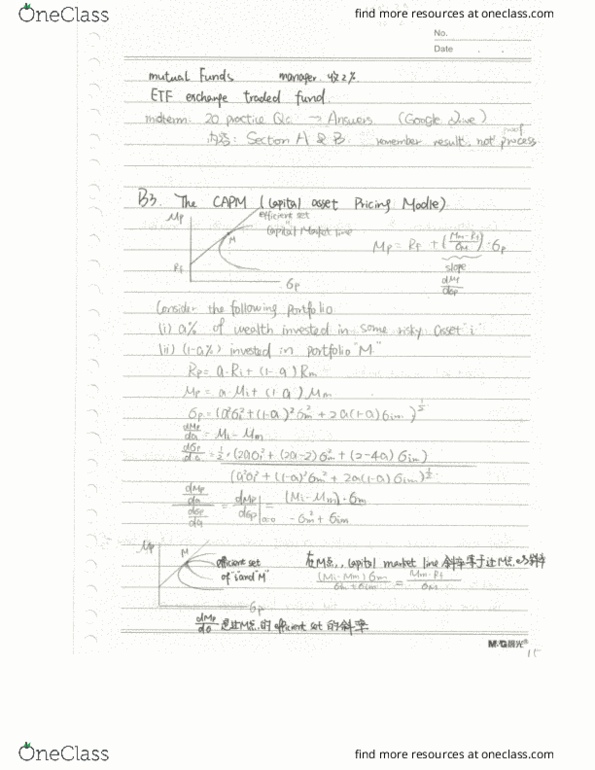 OneClass
find more resources at oneclass.com
No.
Date
mutual Funds manager. 收2%.
ETF exchange traded fund.
midterm: 20 practice Qs → Answers (Google Drive)
内容: Section A & B. remember result, not proof process
B3. The CAPM (Capital asset Pricing Modle)
Mp
efficient set
Capital Market line
M
Rf
σp
Mp = Rf + (Mm-Rf/σM)·σp
slope
dMp/dσp
Consider the following portfolio
(i) a% of wealth invested in some risky asset "i"
(ii) (1-a%) invested in portfolio "M"
Rp = a·Ri + (1-a)Rm
Mp = a·Mi + (1-a)Mm
σp = (a²σi² + (1-a)²σm² + 2a(1-a)σim)^½
dMp/da = Mi - Mm
dσp/da = ½ × (2aσi² + (2a-2)σm² + (2-4a)σim)
(a²σi² + (1-a)²σm² + 2a(1-a)σim)^½
dMp/da / dσp/da = dMp/dσp |a=0 = (Mi-Mm)·σm / -σm² + σim
Mp
M
efficient set
of "i" and "M"
σp
在M点, capital market line 斜率等于过M点的斜率
(Mi-Mm)σm / σm+σim = Mm-Rf / σM
dMp/da 是过M点的 efficient set 的斜率
M&G晨光®
15
OneClass
find more resources at oneclass.com